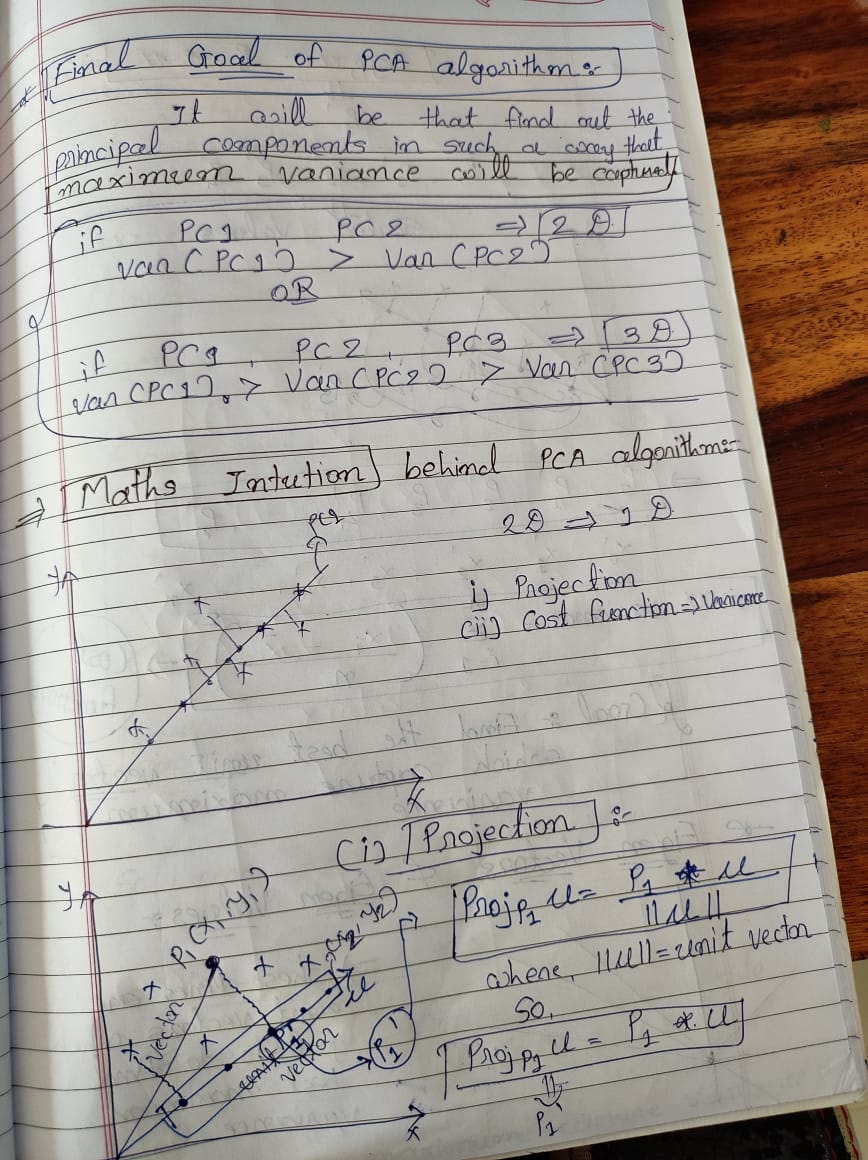 Final Goal of PCA algorithm:-
It will be that find out the
principal components in such a way that
maximum variance will be captured
if PC1, PC2 ⇒ 2D
Var(PC1) > Var(PC2)
OR
if PC1, PC2, PC3 ⇒ 3D
Var(PC1) > Var(PC2) > Var(PC3)
⇒ Maths Intution behind PCA algorithm:-
2D ⇒ 1D
PC1
y
i) Projection
(ii) Cost function ⇒ Variance
x
(i) Projection :-
y
P1(x1, y1)
(x2, y2)
Proj P1 u = P1 * u / ||u||
where, ||u|| = unit vector
So,
Proj P1 u = P1 * u
P1'
vector
unit vector
u
P1'
P1'
x